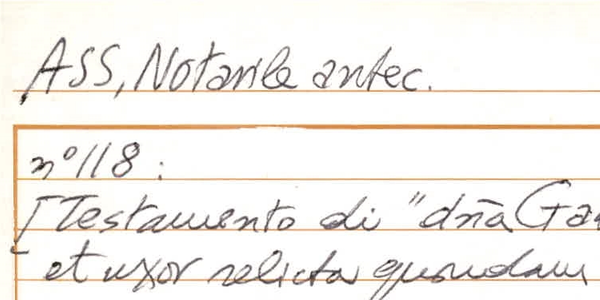 ASS, Notarile antec.
n° 118 :
[Testamento di "dña Ga
et uxor relicta quondam